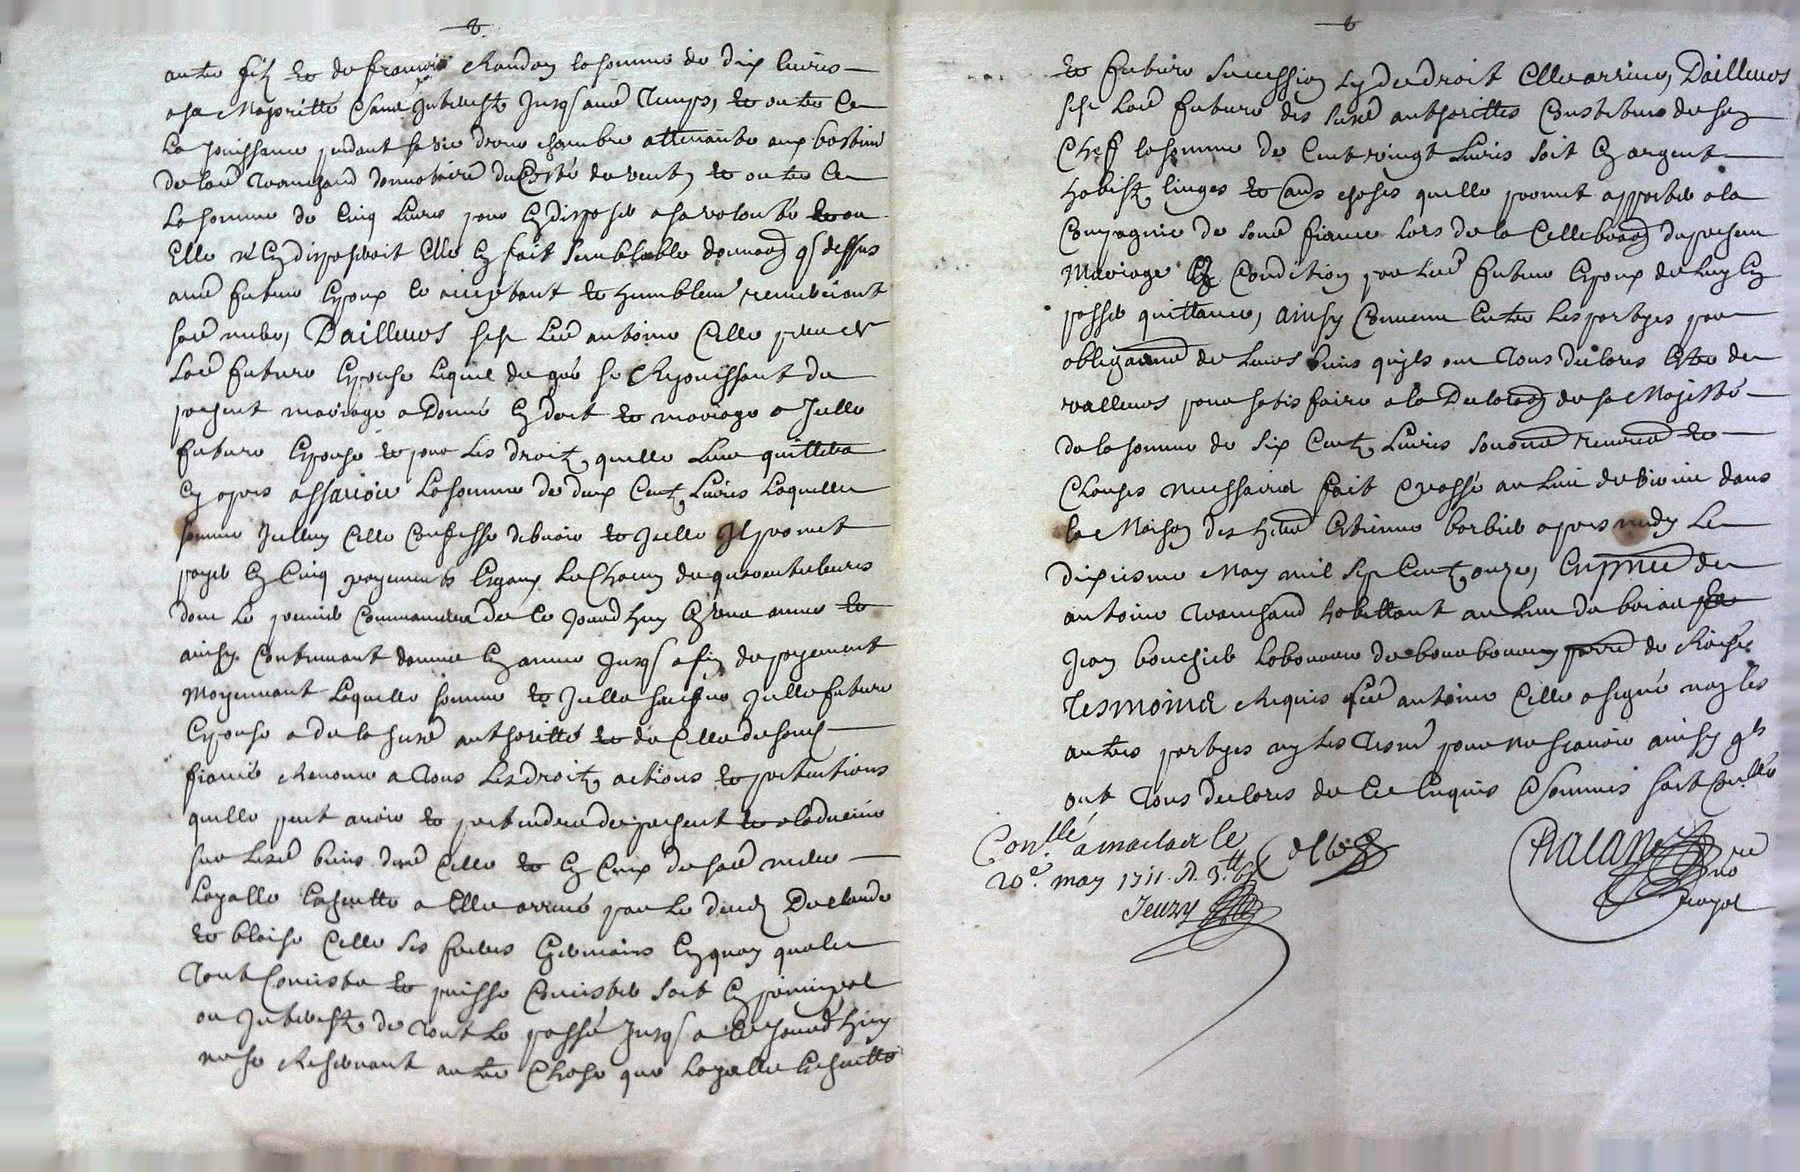 autre filz et de françois Chandon la somme de dix livres
a sa Majoritté sans Interestz Jusq' aud Temps, et outre ce
la jouissance pendant sa vie d'une chambre attenante aux bastim
de lad Tranchand donnataire du Costé de vent, et outre ce
la somme de Cinq livres pour En disposer a sa volonté et ou
Elle n'En disposeroit Elle En fait semblable donnaon q dessus
aud futur Espoux le acceptant et humblem remerciant
sad mere, D'ailleurs s'est led antoine Celle pere de
lad future Espouse lequel de gré se Resjouissant du
present mariage a Donné En dot et mariage a Jcelle
future Espouse et pour les droitz quelle leur quittera
Cy apres assavoir la somme de deux Centz livres laquelle
somme Jcelluy Celle Confesse debvoir et Jcelle Jl promet
payer En Cinq payements Esgaux le Chacun de quarente livres
dont le premier Commancera de ce Jourd'huy En une année et
ainsy Continuant d'année En année Jusq' a fin de payement
Moyennant laquelle somme et Jcelle Jcelle future
Espouse a de la susd authoritté et de Celle de sond
fiancé Renoncé a Tous les droitz actions et pretentions
quelle peut avoir et pretendre de present et a ladvenir
sur lesd biens dud Celle et En Ceux de sad mere
Legalle Eschutte a Elle arrivé par le deceds De claude
et blaise Celle ses freres Germains En quoy que le
Tout Consiste et puisse Consister soit En principal
ou Interestz de Tout le passé Jusq' a ce Jourd'huy
ne se Reservant autre Chose que Legalle Eschutte
et future succession sy de droit Elle arrive, D'ailleurs
s'est lad future des susd authorittés Constituée de son
Chef la somme de Cent vingt livres soit En argent
habistz linges et aus choses quelle promet apporter a la
Compagnie de sond fiancé lors de la Cellebraon du present
Mariage En Condition par led futur Espoux de luy En
passer quittance, ainsy Convenu Entre les partyes par
obligaon de leurs biens qu'ils ont Tous declarés Estre de
valleurs pour satisfaire a la Declaraon de sa Majesté
de la somme de six Centz livres renond et
Clauses necessaires fait Et passé au lieu de dans
la Maison des hers Estienne barbier apres midy le
dixiesme May mil sept Centz onze, En pnce de
antoine Tranchand habittant au lieu de
Jean bouchier laboureur de
Tesmoins Requis led antoine Celle a signé non les
autres partyes ny les Tesm pour ne scavoir ainsy qls
ont Tous declarés de Ce Enquis Et sommés soit Conllé
Conllé a le
20e may 1711. R. 3tt
Celle
Chalan
no re
royal